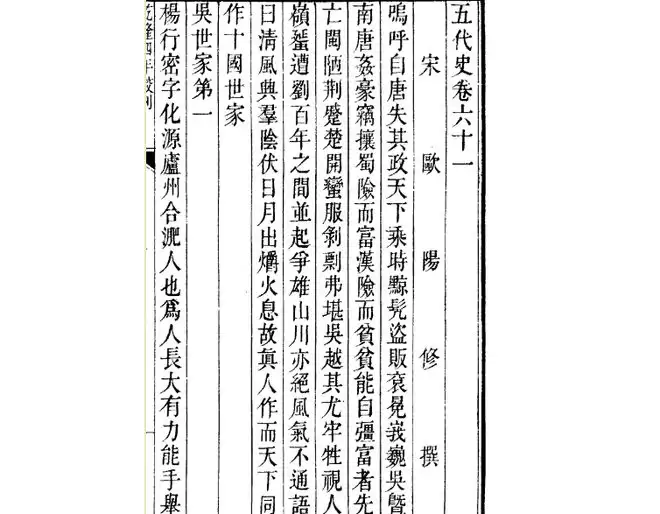 五代史卷六十一
宋歐陽修撰
嗚呼自唐失其政天下乘時黥髡盜販袞冕峩巍吳曁
南唐姦豪竊攘蜀險而富漢險而貧貧能自彊富者先
亡閩陋荆蹙楚開蠻服剝剽弗堪吳越其尤牢牲視人
嶺蜑遭劉百年之間並起爭雄山川亦絕風氣不通語
曰清風興羣陰伏日月出爝火息故眞人作而天下同
作十國世家
吳世家第一
楊行密字化源廬州合淝人也爲人長大有力能手舉
乾隆四年校刊